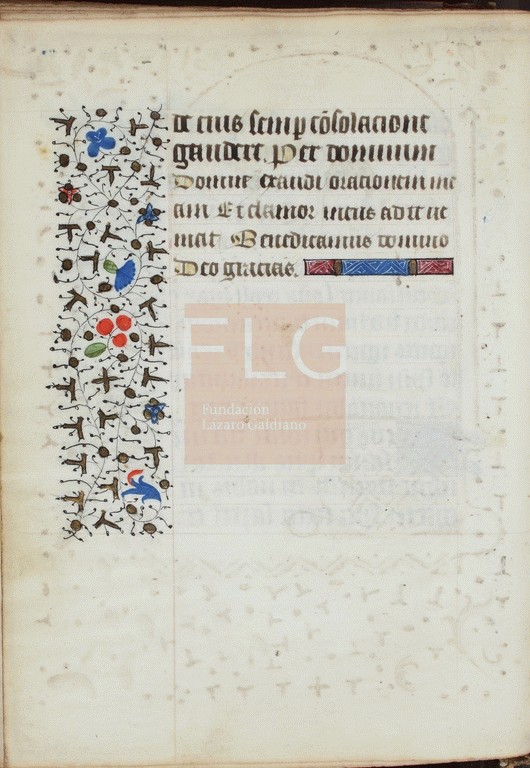 de eius semp cōsolacione
gaudere. Per dominum
Domine exaudi orationem me
am Et clamor meus ad te ue
niat Benedicamus domino
Deo gracias.
FLG
Fundación
Lázaro Galdiano